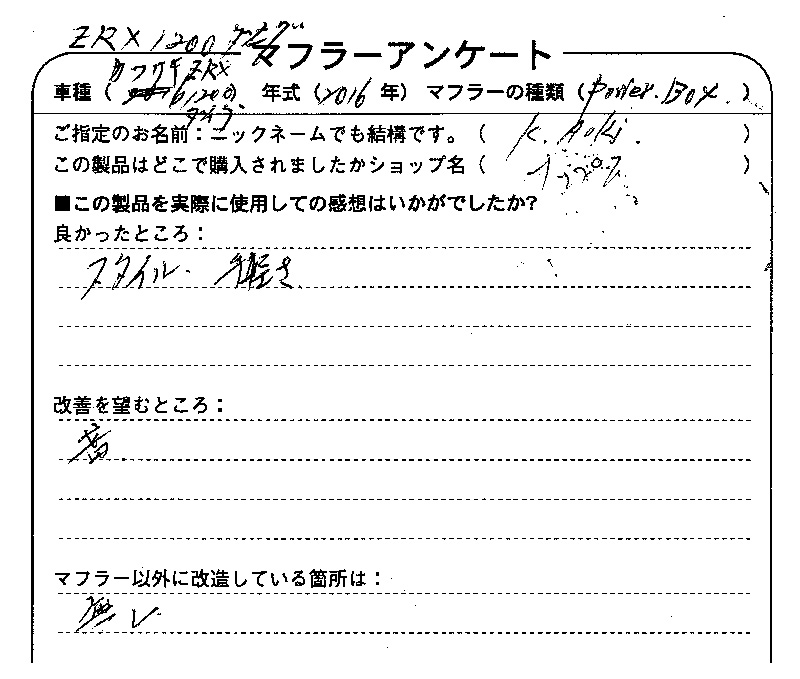 ZRX1200
マフラーアンケート
カワサキZRX
車種（ 1200 ） 年式（2016 年） マフラーの種類（Power.Box.）
ご指定のお名前：ニックネームでも結構です。（ K. Aoki. ）
この製品はどこで購入されましたかショップ名（ ）
■この製品を実際に使用しての感想はいかがでしたか?
良かったところ：
スタイル. 軽さ
改善を望むところ：
音.
マフラー以外に改造している箇所は：
無し